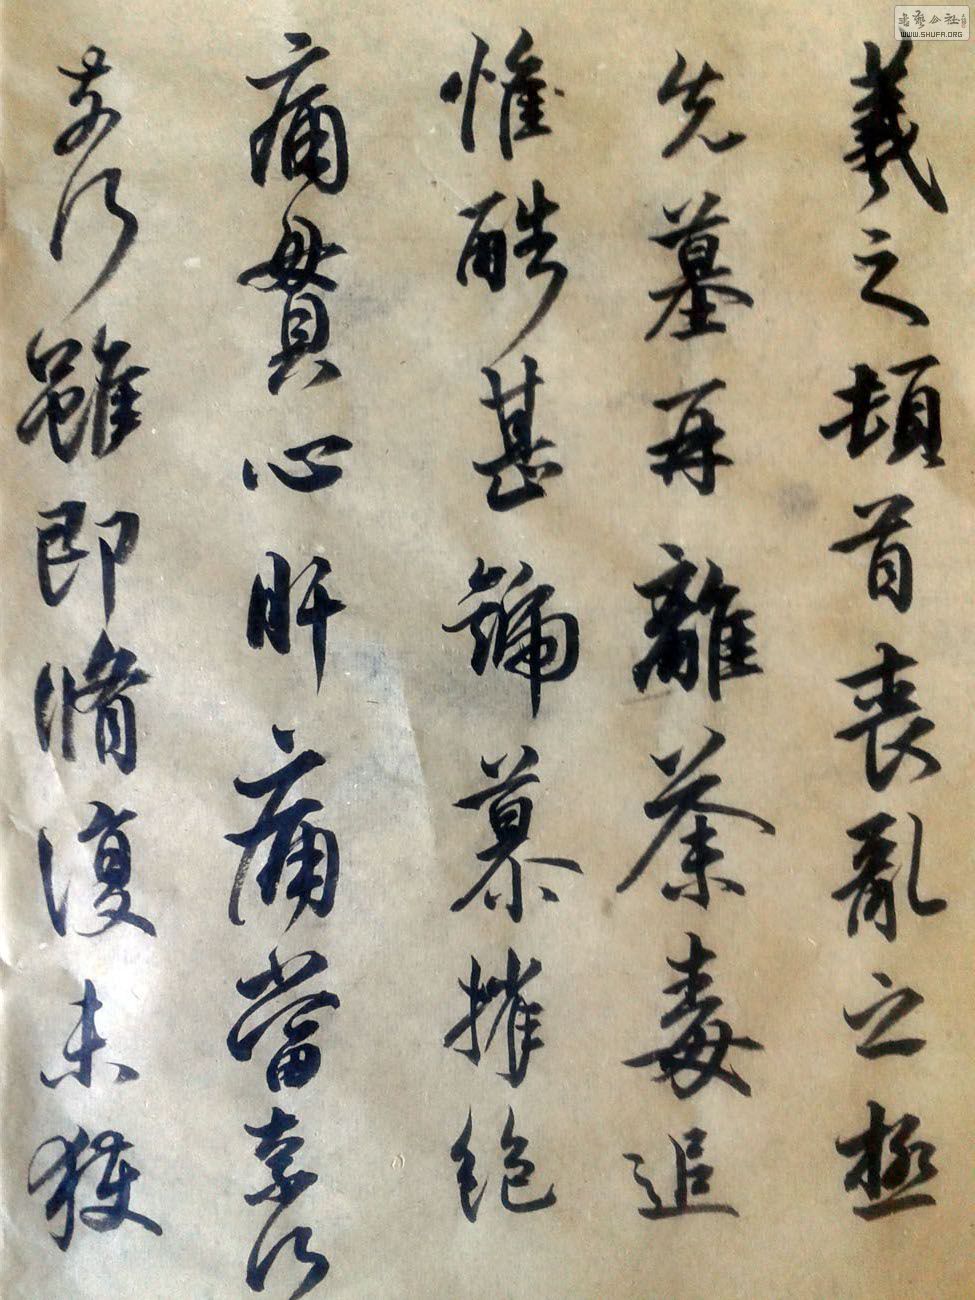 羲之頓首喪亂之極
先墓再離荼毒追
惟酷甚號慕摧絕
痛貫心肝痛當奈何
奈何雖即脩復未獲
書藝公社
WWW.SHUFA.ORG